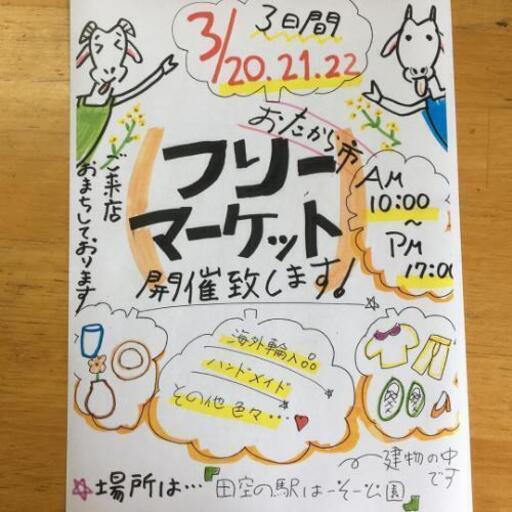 3日間
3/20.21.22
おたから市
フリー
マーケット
開催致します!
AM
10:00
～
PM
17:00
ご来店
おまちしております
海外輸入品
ハンドメイド
その他色々…
建物の中
です
場所は…『田空の駅はーそー公園』